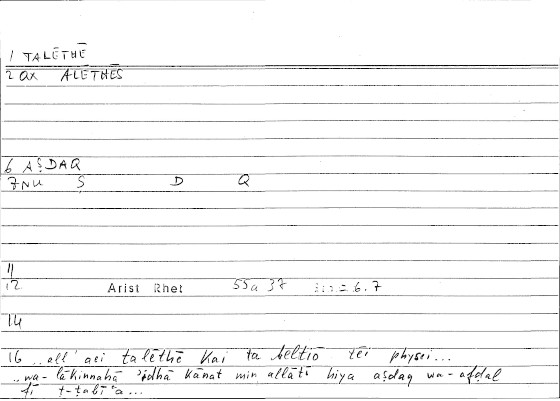 1 TALĒTHĒ
2 ax ALĒTHĒS
6 AṢDAQ
7 NU Ṣ D Q
11
12 Arist Rhet 55a 37 = 6.7
14
16 „all' aei talēthē kai ta beltiō tēi physei...
„wa-lākinnahā 'idhā kānat min allātī hiya aṣdaq wa-afḍal
fī ṭ-ṭabī'a...